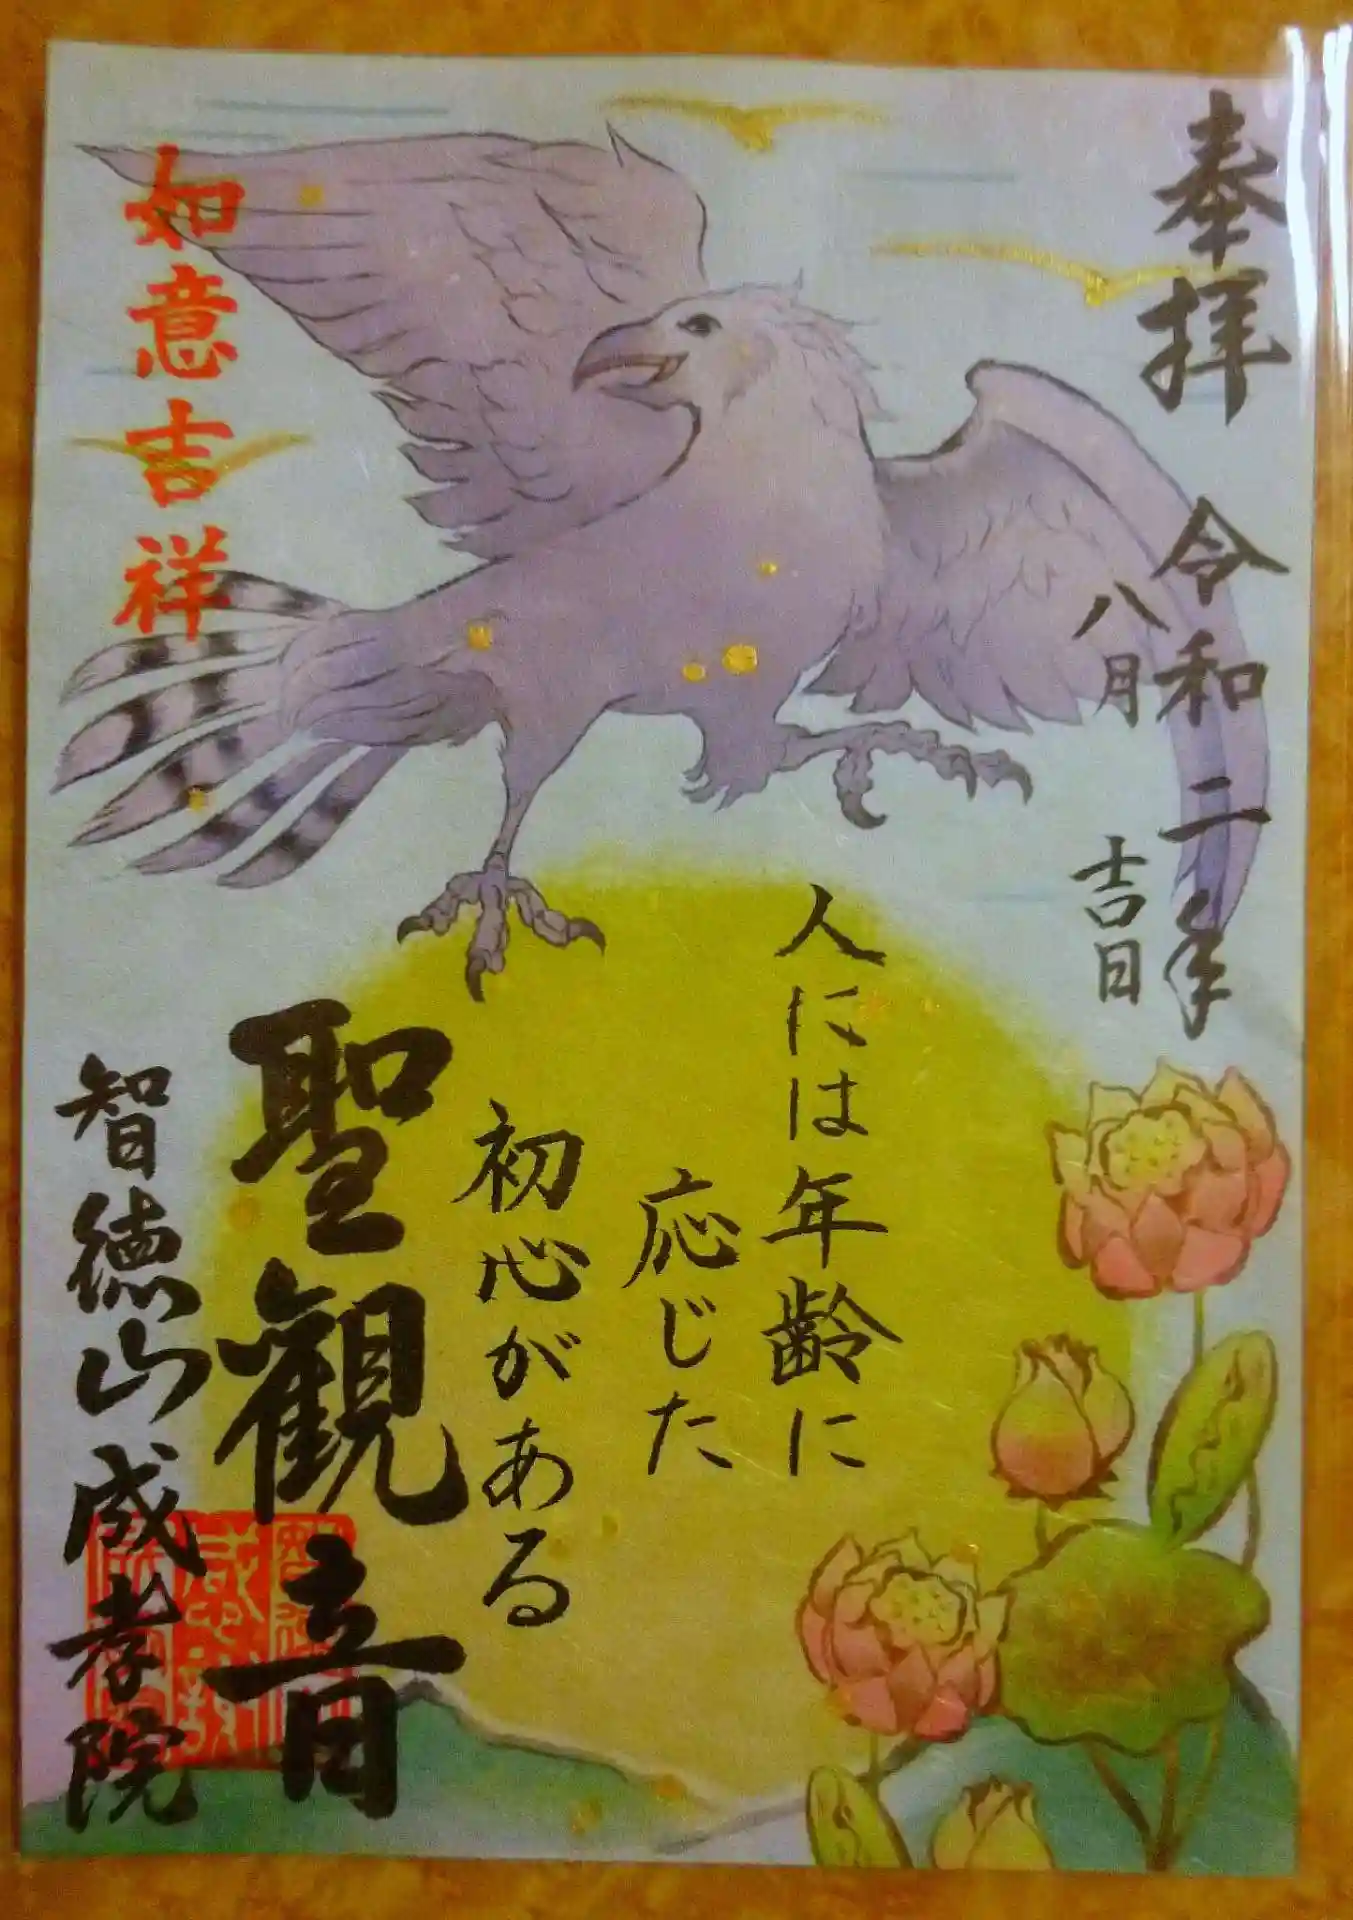 奉拝
令和二年
八月
吉日
人には年齢に
応じた
初心がある
聖観音
智徳山成孝院
如意吉祥